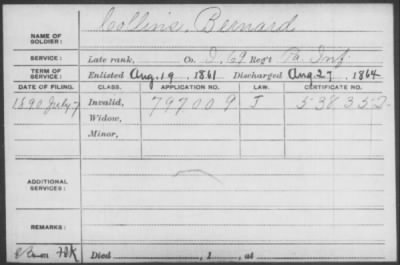 Collins, Bernard
NAME OF SOLDIER:
SERVICE: Late rank, Co. D, 69 Reg't Pa. Inf
TERM OF SERVICE: Enlisted Aug. 19, 1861. Discharged Aug. 27, 1864
DATE OF FILING. CLASS. APPLICATION NO. LAW. CERTIFICATE NO.
1890 July 7 Invalid, 797009 J 538352
Widow,
Minor,
ADDITIONAL SERVICES:
REMARKS:
Died , 1 , at